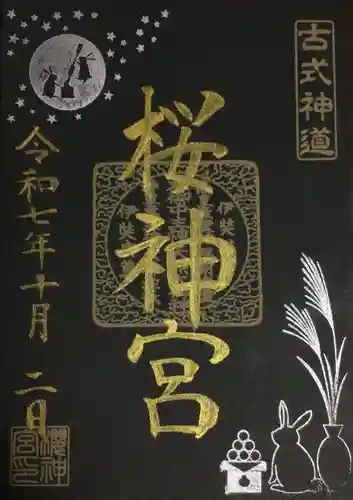 古式神道
桜神宮
令和七年十月二日
櫻神
宮印